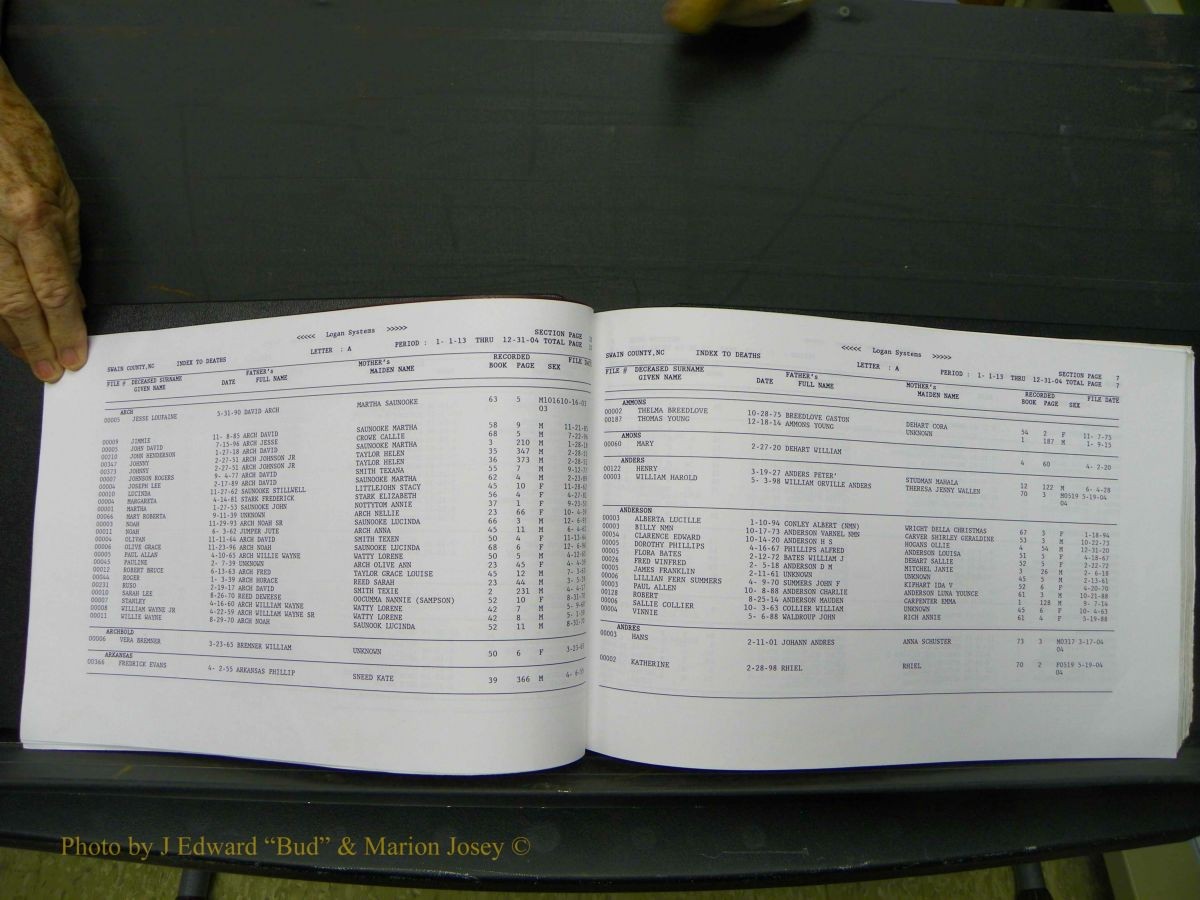 <<<<< Logan Systems >>>>>
SWAIN COUNTY,NC INDEX TO DEATHS LETTER : A PERIOD : 1- 1-13 THRU 12-31-04 SECTION PAGE
TOTAL PAGE
FILE # DECEASED SURNAME GIVEN NAME DATE FATHER's FULL NAME MOTHER's MAIDEN NAME RECORDED BOOK PAGE SEX FILE
ARCH
00005 JESSE LOUFAINE 5-31-90 DAVID ARCH MARTHA SAUNOOKE 63 5 M101610-16-03
03
00009 JIMMIE 11- 8-85 ARCH DAVID SAUNOOKE MARTHA 58 9 M 11-21-85
00005 JOHN DAVID 7-15-96 ARCH JESSE CROWE CALLIE 68 5 M 7-22-
00210 JOHN HENDERSON 1-27-18 ARCH DAVID SAUNOOKE MARTHA 3 210 M 1-28-
00347 JOHNNY 2-27-51 ARCH JOHNSON JR TAYLOR HELEN 35 347 M 2-28-
00373 JOHNNY 2-27-51 ARCH JOHNSON JR TAYLOR HELEN 36 373 M 2-28-
00007 JOHNSON ROGERS 9- 4-77 ARCH DAVID SMITH TEXANA 55 7 M 9-12-
00004 JOSEPH LEE 2-17-89 ARCH DAVID SAUNOOKE MARTHA 62 4 M 2-23-
00010 LUCINDA 11-27-62 SAUNOOKE STILLWELL LITTLEJOHN STACY 45 10 F 11-28-
00004 MARGARETA 4-14-81 STARK FREDERICK STARK ELIZABETH 56 4 F 4-27-
00001 MARTHA 1-27-53 SAUNOOKE JOHN NOTTYTOM ANNIE 37 1 F 9-23-
00066 MARY ROBERTA 9-11-39 UNKNOWN ARCH NELLIE 23 66 F 10- 4-
00003 NOAH 11-29-93 ARCH NOAH SR SAUNOOKE LUCINDA 66 3 M 12- 6-
00011 NOAH 6- 3-62 JUMPER JUTE ARCH ANNA 45 11 M 6- 4-
00004 OLIVAN 11-11-64 ARCH DAVID SMITH TEXEN 50 4 F 11-13-
00006 OLIVE GRACE 11-23-96 ARCH NOAH SAUNOOKE LUCINDA 68 6 F 12- 6-
00005 PAUL ALLAN 4-10-65 ARCH WILLIE WAYNE WATTY LORENE 50 5 M 4-22-
00045 PAULINE 2- 7-39 UNKNOWN ARCH OLIVE ANN 23 45 F 4- 4-
00012 ROBERT BRUCE 6-13-63 ARCH FRED TAYLOR GRACE LOUISE 45 12 M 7- 3-
00044 ROGER 1- 3-39 ARCH HORACE REED SARAH 23 44 M 3- 5-
00231 RUSO 2-19-17 ARCH DAVID SMITH TEXIE 2 231 M 4- 4-
00010 SARAH LEE 8-26-70 REED DEWEESE OOCUMMA NANNIE (SAMPSON) 52 10 F 8-31-
00007 STANLEY 4-16-60 ARCH WILLIAM WAYNE WATTY LORENE 42 7 M 5- 9-
00008 WILLIAM WAYNE JR 4-22-59 ARCH WILLIAM WAYNE SR WATTY LORENE 42 8 M 5- 1-
00011 WILLIE WAYNE 8-29-70 ARCH NOAH SAUNOOK LUCINDA 52 11 M 8-31-
ARCHBOLD
00006 VERA BREMNER 3-23-65 BREMNER WILLIAM UNKNOWN 50 6 F 3-23-
ARKANSAS
00366 FREDRICK EVANS 4- 2-55 ARKANSAS PHILLIP SNEED KATE 39 366 M 4- 6-
<<<<< Logan Systems >>>>>
SWAIN COUNTY,NC INDEX TO DEATHS LETTER : A PERIOD : 1- 1-13 THRU 12-31-04 SECTION PAGE 7
TOTAL PAGE 7
FILE # DECEASED SURNAME GIVEN NAME DATE FATHER's FULL NAME MOTHER's MAIDEN NAME RECORDED BOOK PAGE SEX FILE DATE
AMMONS
00002 THELMA BREEDLOVE 10-28-75 BREEDLOVE GASTON DEHART CORA 54 2 F 11- 7-75
00187 THOMAS YOUNG 12-18-14 AMMONS YOUNG UNKNOWN 1 187 M 1- 9-15
AMONS
00060 MARY 2-27-20 DEHART WILLIAM 4 60 4- 2-20
ANDERS
00122 HENRY 3-19-27 ANDERS PETER' STUDMAN MAHALA 12 122 M 6- 4-28
00003 WILLIAM HAROLD 5- 3-98 WILLIAM ORVILLE ANDERS THERESA JENNY WALLEN 70 3 M0519 5-19-04
04
ANDERSON
00003 ALBERTA LUCILLE 1-10-94 CONLEY ALBERT (NMN) WRIGHT DELLA CHRISTMAS 67 3 F 1-18-94
00003 BILLY NMN 10-17-73 ANDERSON VARNEL NMN CARVER SHIRLEY GERALDINE 53 3 M 10-22-73
00054 CLARENCE EDWARD 10-14-20 ANDERSON H S HOGANS OLLIE 4 54 M 12-31-20
00005 DOROTHY PHILLIPS 4-16-67 PHILLIPS ALFRED ANDERSON LOUISA 51 5 F 4-18-67
00005 FLORA BATES 2-12-72 BATES WILLIAM J DEHART SALLIE 52 5 F 2-22-72
00026 FRED WINFRED 2- 5-18 ANDERSON D M MITCHEL JANIE 3 26 M 2- 6-18
00005 JAMES FRANKLIN 2-11-61 UNKNOWN UNKNOWN 45 5 M 2-13-61
00006 LILLIAN FERN SUMMERS 4- 9-70 SUMMERS JOHN F KIPHART IDA V 52 6 F 4-20-70
00003 PAUL ALLEN 10- 8-88 ANDERSON CHARLIE ANDERSON LUNA YOUNCE 61 3 M 10-21-88
00128 ROBERT 8-25-14 ANDERSON MAUDEN CARPENTER EMMA 1 128 M 9- 7-14
00006 SALLIE COLLIER 10- 3-63 COLLIER WILLIAM UNKNOWN 45 6 F 10- 4-63
00004 VINNIE 5- 6-88 WALDROUP JOHN RICH ANNIE 61 4 F 5-19-88
ANDRES
00003 HANS 2-11-01 JOHANN ANDRES ANNA SCHUSTER 73 3 M0317 3-17-04
04
00002 KATHERINE 2-28-98 RHIEL RHIEL 70 2 F0519 5-19-04
04
Photo by J Edward “Bud” & Marion Josey ©